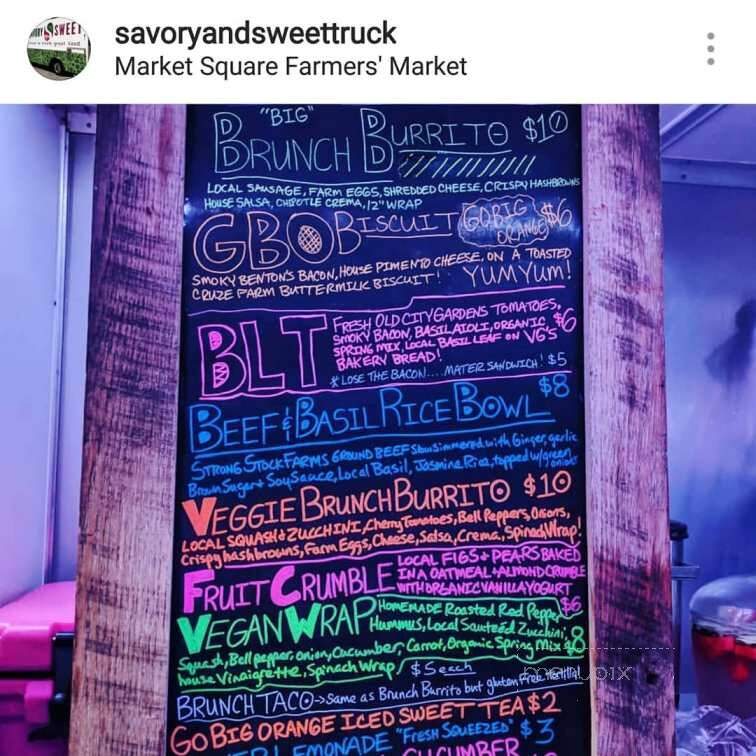 savoryandsweettruck
Market Square Farmers' Market
"BIG"
BRUNCH BURRITO $10
LOCAL SAUSAGE, FARM EGGS, SHREDDED CHEESE, CRISPY HASHBROWNS
HOUSE SALSA, CHIPOTLE CREMA, 12" WRAP
GBO BISCUIT GO BIG ORANGE $6
SMOKY BENTON'S BACON, HOUSE PIMENTO CHEESE, ON A TOASTED
CRUZE FARM BUTTERMILK BISCUIT! YUM YUM!
BLT
FRESH OLD CITY GARDENS TOMATOES,
SMOKY BACON, BASIL AIOLI, ORGANIC $6
SPRING MIX, LOCAL BASIL LEAF ON VG'S
BAKERY BREAD!
* LOSE THE BACON.... MATER SANDWICH! $5
BEEF & BASIL RICE BOWL $8
STRONG STOCK FARMS GROUND BEEF Slow Simmered with Ginger, garlic
Brown Sugar & Soy Sauce, Local Basil, Jasmine Rice, topped w/green onions
VEGGIE BRUNCH BURRITO $10
LOCAL SQUASH & ZUCCHINI, Cherry Tomatoes, Bell Peppers, Onions,
Crispy hashbrowns, Farm Eggs, Cheese, Salsa, Crema, Spinach Wrap!
FRUIT CRUMBLE
LOCAL FIGS & PEARS BAKED
IN A OATMEAL & ALMOND CRUMBLE
WITH ORGANIC VANILLA YOGURT
$6
VEGAN WRAP
HOMEMADE Roasted Red Pepper
Hummus, Local Sauteéd Zucchini, $8
Squash, Bell pepper, onion, Cucumber, Carrot, Organic Spring Mix &
house Vinaigrette, Spinach Wrap / $5 each
BRUNCH TACO -> Same as Brunch Burrito but gluten free tortilla!
GO BIG ORANGE ICED SWEET TEA $2
LEMONADE "FRESH SQUEEZED" $3
CUCUMBER